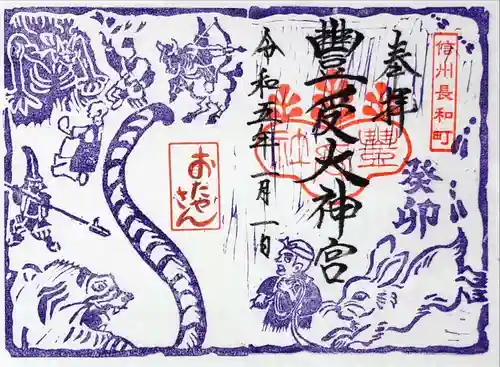 信州長和町
奉拝
癸卯
豊受大神宮
令和五年一月一日
おたや
さん